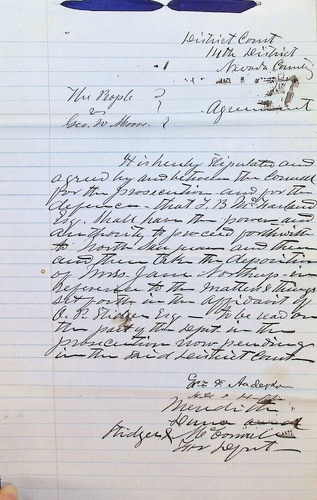 District Court
14th District
Nevada County
The People
vs
Geo. W. Moore.
Agreement
It is hereby stipulated and
agreed by and between the Counsel
for the prosecution and for the
defence - that T. B. McFarland
Esq. shall have the power and
authority to proceed forthwith
to North San Juan and then
and there take the deposition
of Mrs. Jane Northup - in
reference to the matters & things
set forth in the affidavit of
Stidger Esq - to be read on
the part of the Deft. in the
prosecution now pending
in the said District Court
Meredith
Stidger &
for Deft